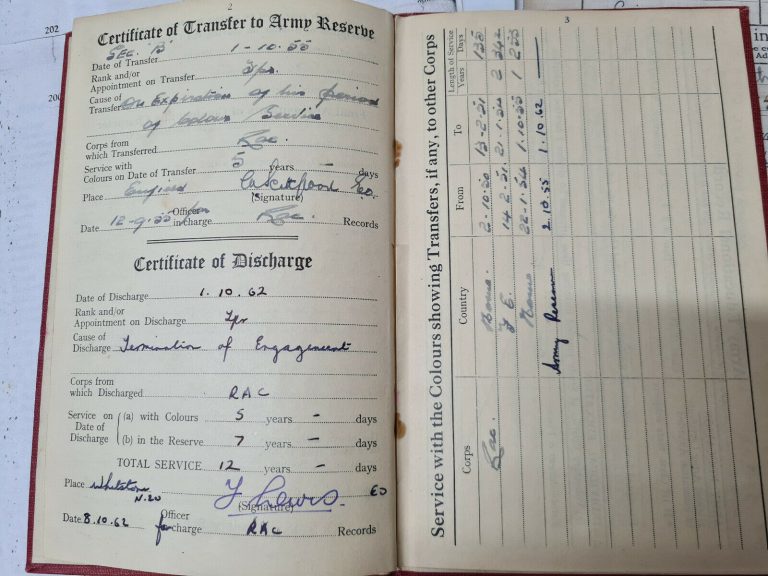 202
200
2
Certificate of Transfer to Army Reserve
Sec. B
Date of Transfer 1-10-55
Rank and/or
Appointment on Transfer Tpr.
Cause of
Transfer On Expiration of his period
of Colour Service
Corps from
which Transferred Rac.
Service with
Colours on Date of Transfer 5 years - days
Place Enfield
(Signature)
Date 12-9-55 Officer
in charge Rac. Records
Certificate of Discharge
Date of Discharge 1.10.62
Rank and/or
Appointment on Discharge Tpr
Cause of
Discharge Termination of Engagement
Corps from
which Discharged RAC
Service on
Date of
Discharge
(a) with Colours 5 years - days
(b) in the Reserve 7 years - days
TOTAL SERVICE 12 years - days
Place Whetstone
N.20
Lewis EO
(Signature)
Date 8.10.62 Officer
for charge RAC Records
3
Service with the Colours showing Transfers, if any, to other Corps
Corps Country From To Length of Service
Years Days
Rac. Home. 2-10-50 13-2-51 135
14-2-51 21-1-54 2 342
Home 22-1-54 1-10-55 1 253
Army Reserve 2.10.55 1.10.62